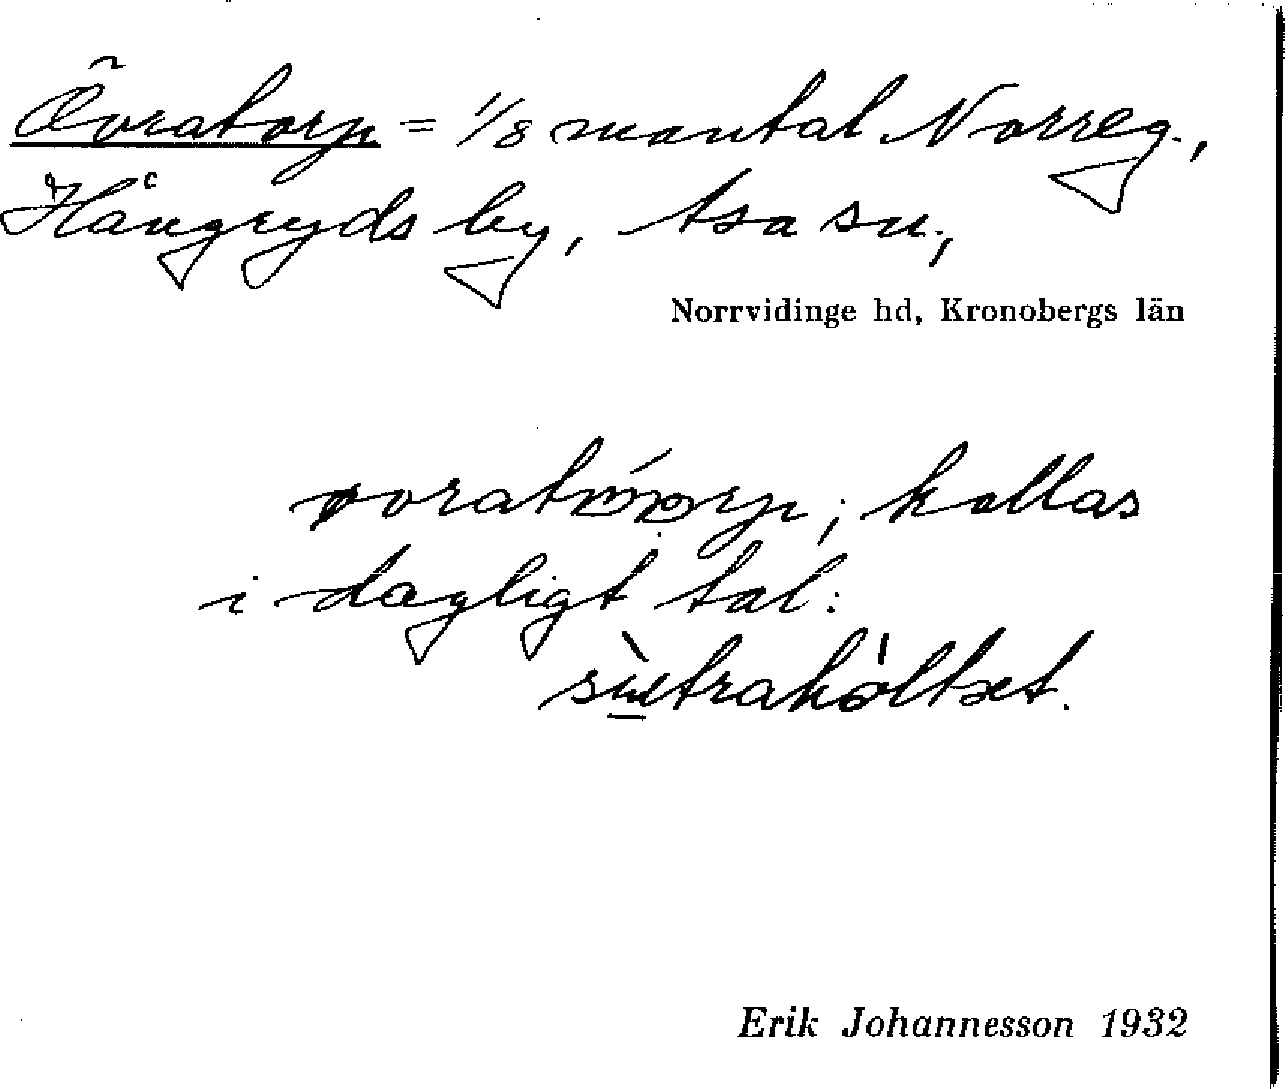 Övratorp = 1/8 mantal Norreg.,
Hångryds by, tsa sn;
Norrvidinge hd, Kronobergs län
kallas
i dagligt tal:
Erik Johannesson 1932